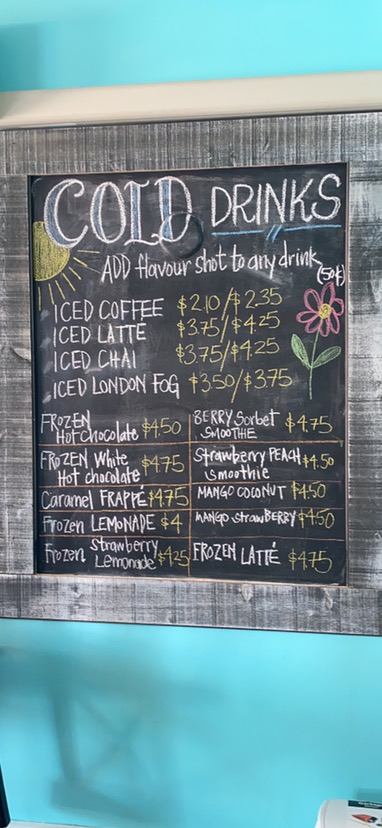 COLD DRINKS
ADD flavour shot to any drink (50¢)
ICED COFFEE $2.10/$2.35
ICED LATTE $3.75/$4.25
ICED CHAI $3.75/$4.25
ICED LONDON FOG $3.50/$3.75
FROZEN
Hot chocolate $4.50
BERRY Sorbet
SMOOTHIE $4.75
FROZEN White
Hot chocolate $4.75
Strawberry PEACH
smoothie $4.50
Caramel FRAPPÉ $4.75
MANGO COCONUT $4.50
Frozen LEMONADE $4
MANGO STRAWBERRY $4.50
Frozen Strawberry
Lemonade $4.25
FROZEN LATTÉ $4.75